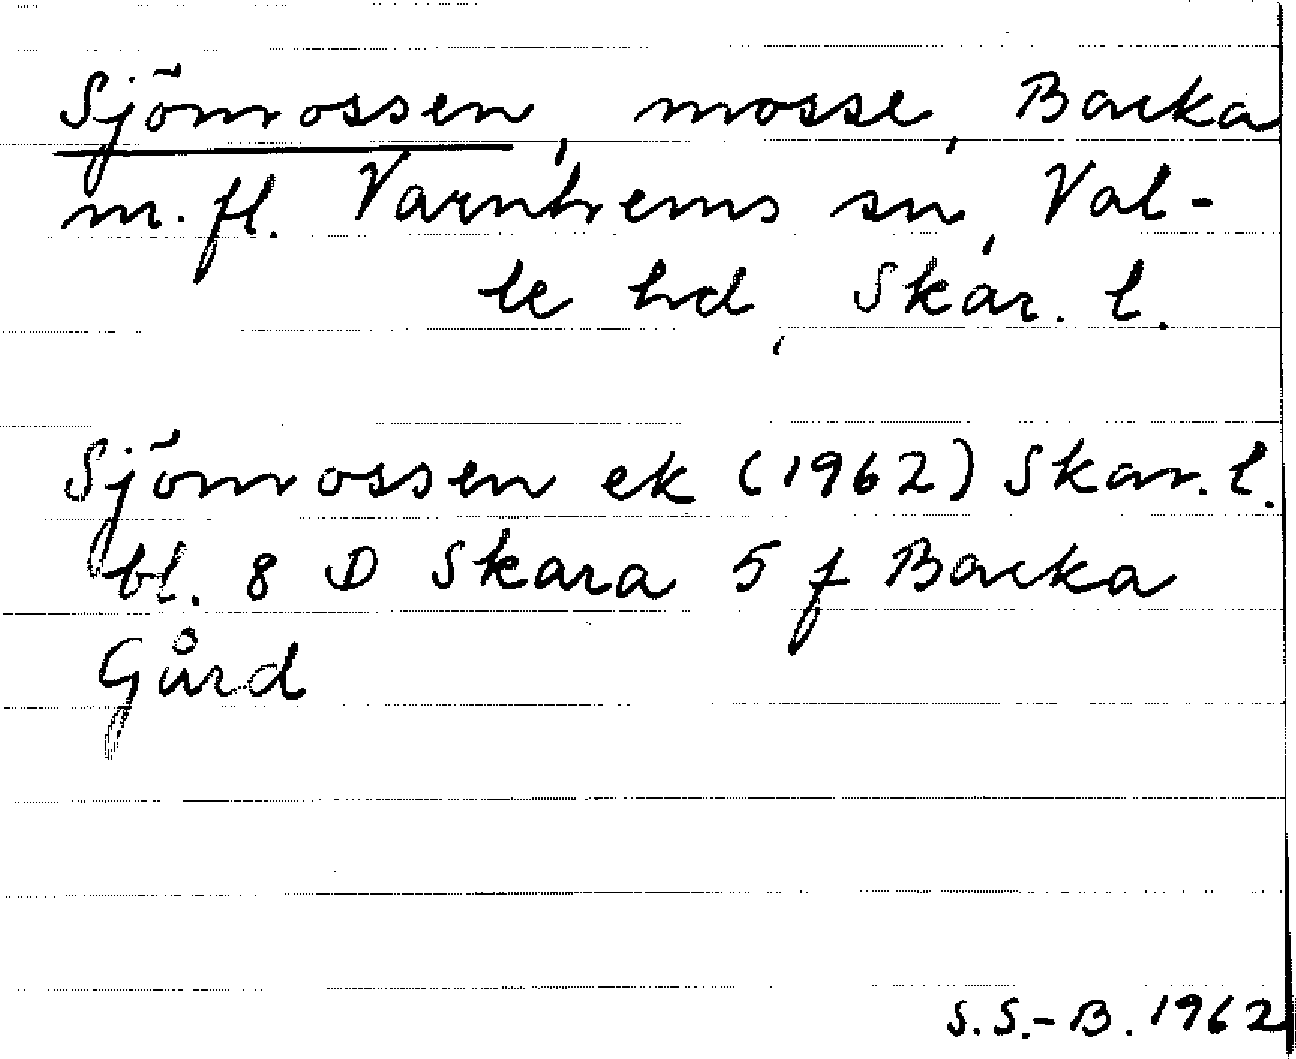 Sjömossen, mosse, Backa
m. fl. Varnhems sn, Val-
le hd, Skar. l.
Sjömossen ek (1962) Skar. l.
bl. 8 D Skara 5 f Backa
Gård
S. S.-B. 1962